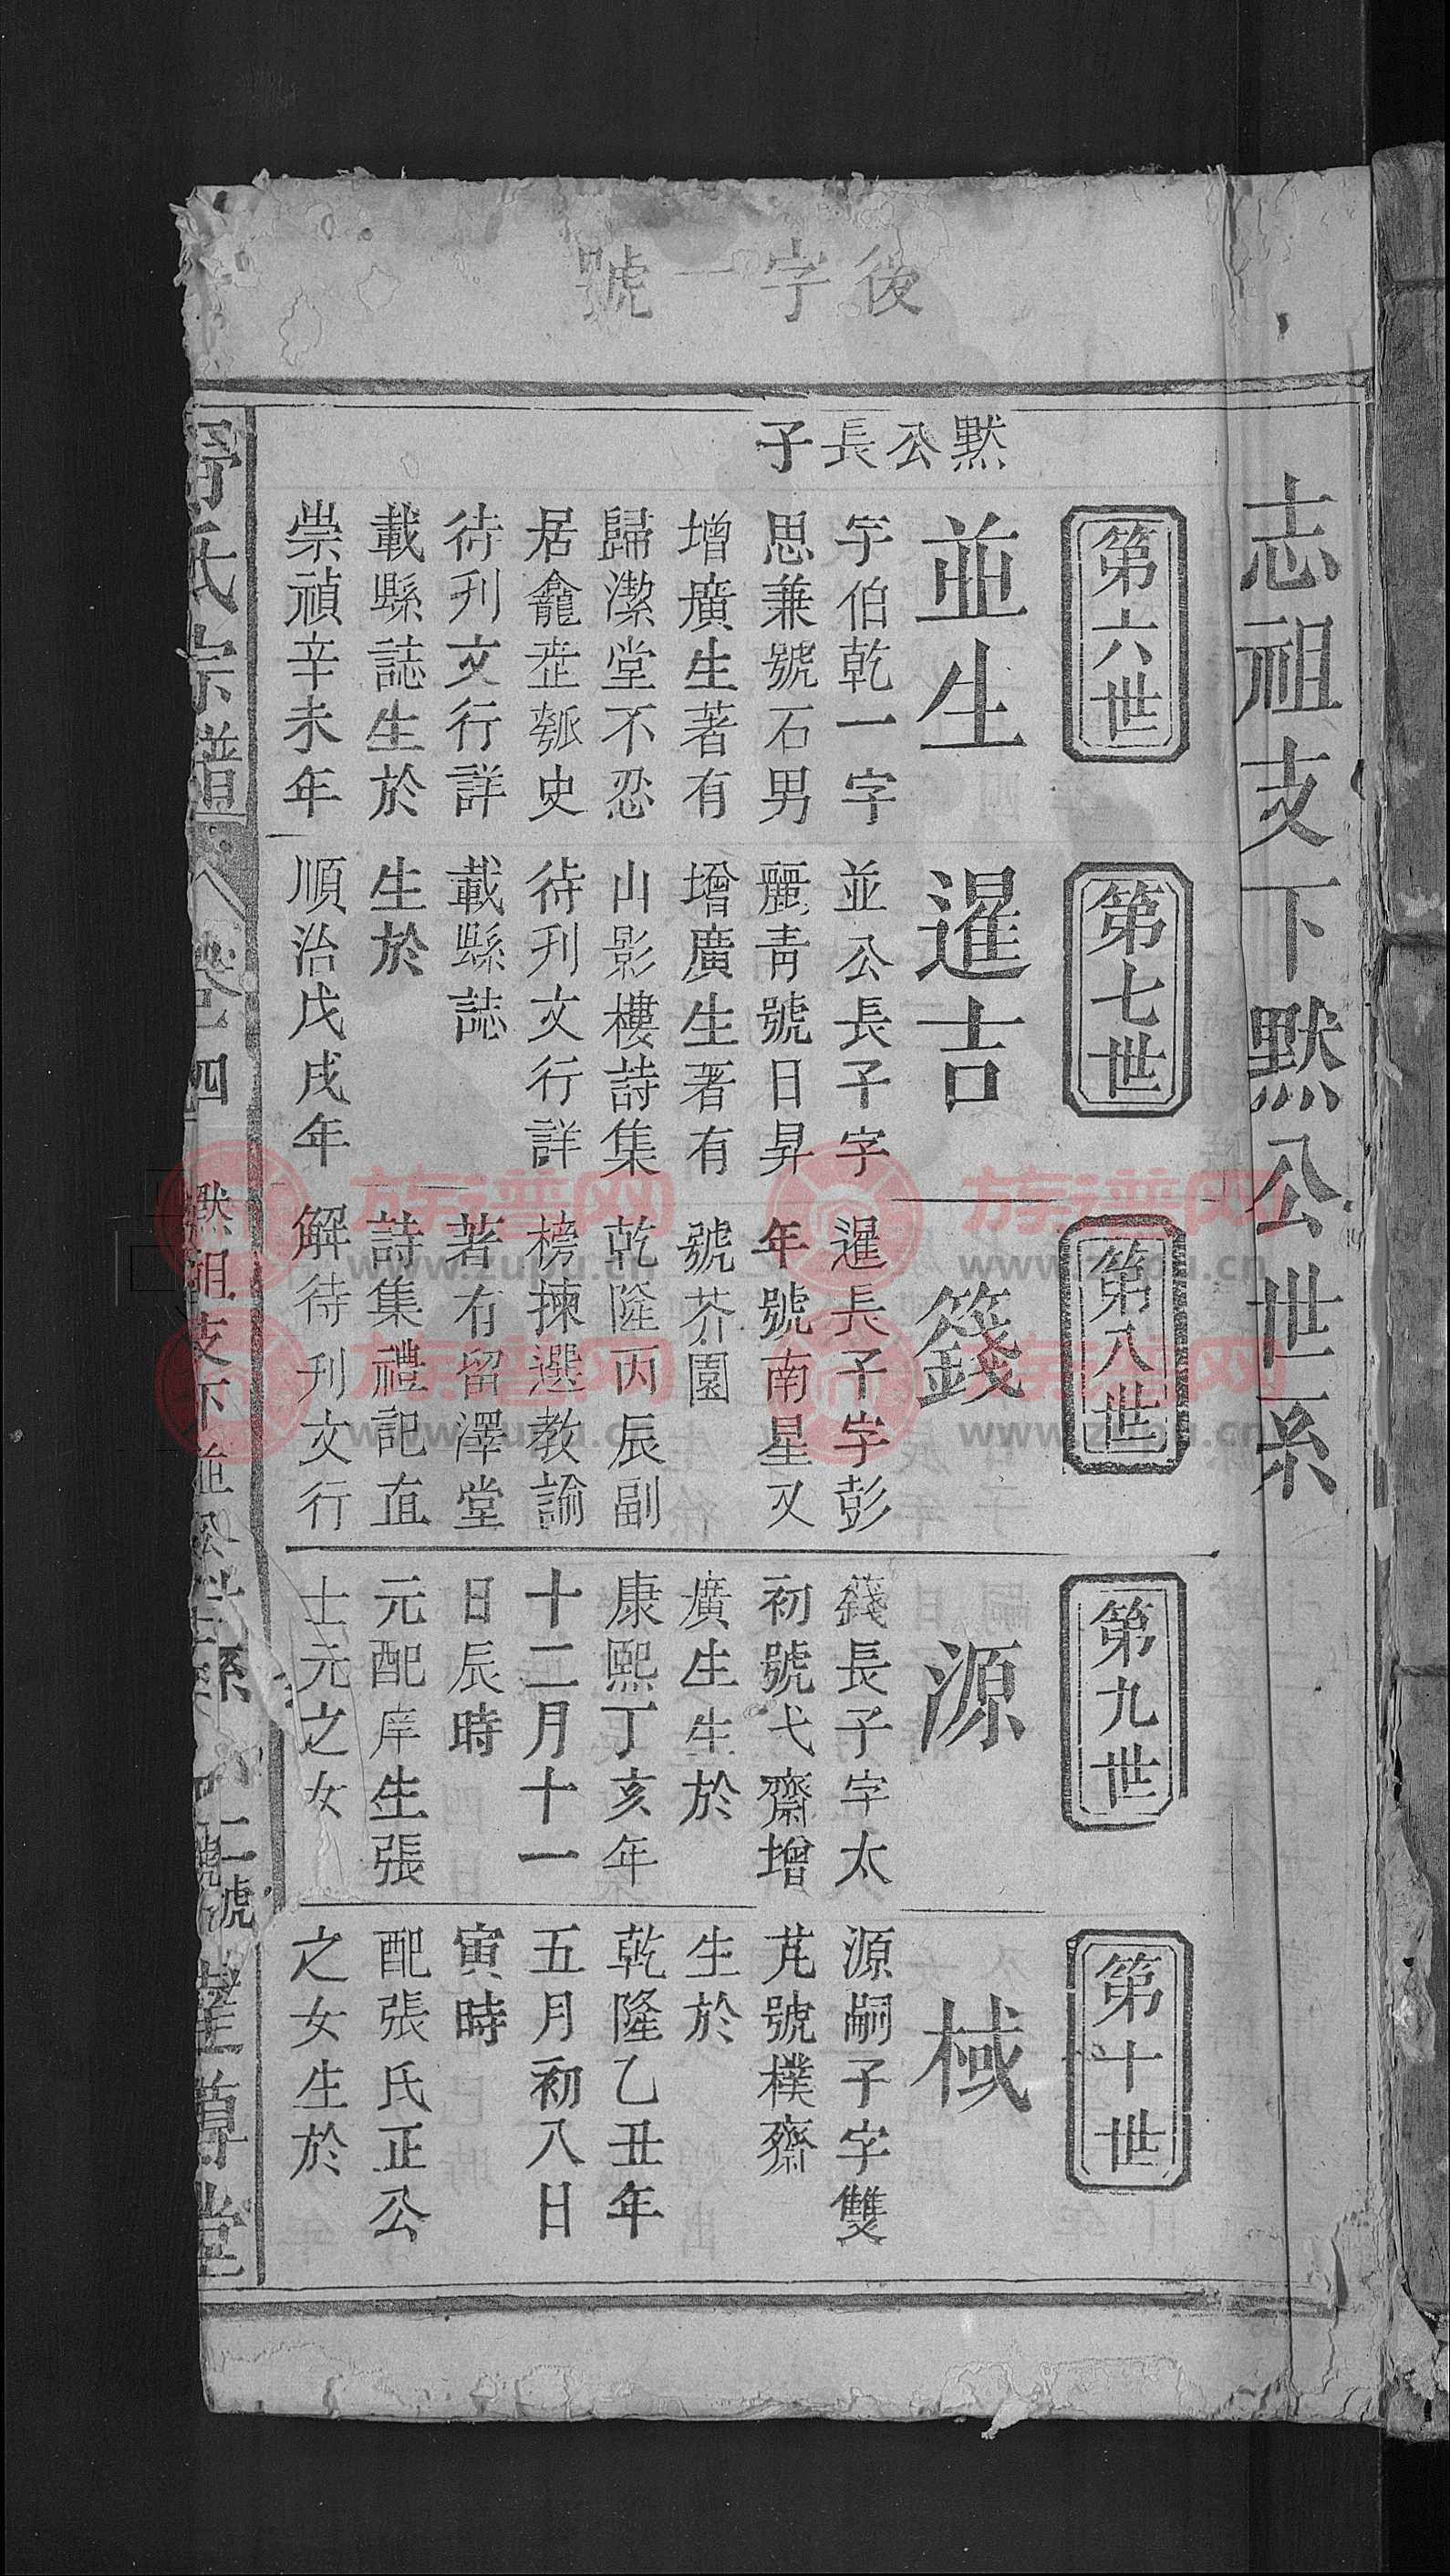 後字一號
志祖支下默公世系
第六世
默公長子
並生
字伯乾一字
思兼號石男
增廣生著有
歸潔堂不忍
居龕壺瓠史
待刋文行詳
載縣誌生於
崇禎辛未年
第七世
暹吉
並公長子字
麗青號日昇
增廣生著有
山影樓詩集
待刋文行詳
載縣誌
生於
順治戊戌年
第八世
籛
暹長子字彭
年號南星又
號芥園
乾隆丙辰副
榜揀選教諭
著有留澤堂
詩集禮記直
解待刋文行
第九世
源
籛長子字太
初號弋齋增
廣生生於
康熙丁亥年
十二月十一
日辰時
元配庠生張
士元之女
第十世
棫
源嗣子字雙
芃號樸齋
生於
乾隆乙丑年
五月初八日
寅時
配張氏正公
之女生於
氏宗譜 卷之四 默祖支下並公世系 一號 尊堂
族谱网
www.zupu.cn
族谱网
www.zupu.cn
族谱网
www.zupu.cn
族谱网
www.zupu.cn